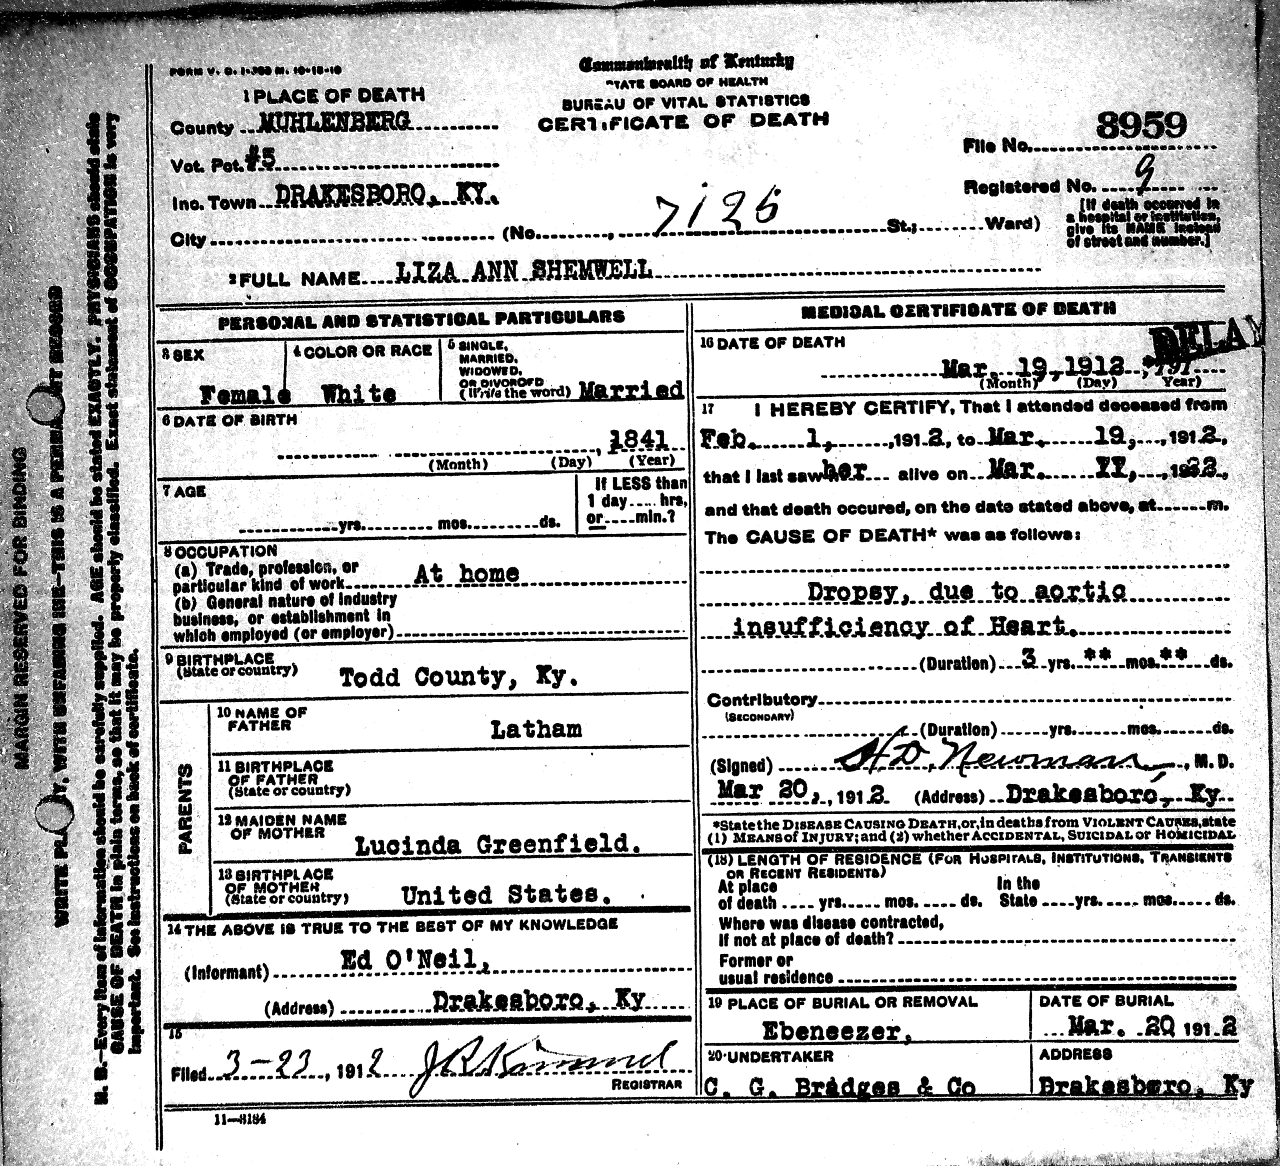 FORM V. S. 1-
Commonwealth of Kentucky
STATE BOARD OF HEALTH
BUREAU OF VITAL STATISTICS
CERTIFICATE OF DEATH
1 PLACE OF DEATH
County MUHLENBERG
Vot. Pct. #5
Inc. Town DRAKESBORO, KY.
City (No. , 7125 St.; Ward)
File No. 8959
Registered No. 9
[If death occurred in
a hospital or institution,
give its NAME instead
of street and number.]
2 FULL NAME LIZA ANN SHEMWELL
PERSONAL AND STATISTICAL PARTICULARS
3 SEX
Female
4 COLOR OR RACE
White
5 SINGLE,
MARRIED,
WIDOWED,
OR DIVORCED
(Write the word) Married
6 DATE OF BIRTH
, 1841
(Month) (Day) (Year)
7 AGE
yrs. mos. ds.
If LESS than
1 day .... hrs,
or .... min.?
8 OCCUPATION
(a) Trade, profession, or
particular kind of work At home
(b) General nature of industry
business, or establishment in
which employed (or employer)
9 BIRTHPLACE
(State or country) Todd County, Ky.
PARENTS
10 NAME OF
FATHER Latham
11 BIRTHPLACE
OF FATHER
(State or country)
12 MAIDEN NAME
OF MOTHER Lucinda Greenfield.
13 BIRTHPLACE
OF MOTHER
(State or country) United States.
14 THE ABOVE IS TRUE TO THE BEST OF MY KNOWLEDGE
(Informant) Ed O'Neil,
(Address) Drakesboro, Ky
15
Filed 3-23, 1912 J R Kimmel
REGISTRAR
11-3184
MEDICAL CERTIFICATE OF DEATH
16 DATE OF DEATH
DELAY
Mar. 19, 1912, 191
(Month) (Day) Year)
17 I HEREBY CERTIFY, That I attended deceased from
Feb. 1, , 1912, to Mar. 19, , 1912,
that I last saw her alive on Mar. , 
and that death occured, on the date stated above, at m.
The CAUSE OF DEATH* was as follows:
Dropsy, due to aortic
insufficiency of Heart.
(Duration) 3 yrs. ** mos. ** ds.
Contributory
(SECONDARY)
(Duration) yrs. mos. ds.
(Signed) H.D. Newman, M. D.
Mar 20, , 1912 (Address) Drakesboro, Ky
*State the DISEASE CAUSING DEATH, or, in deaths from VIOLENT CAUSES, state
(1) MEANS of INJURY; and (2) whether ACCIDENTAL, SUICIDAL or HOMICIDAL
(18) LENGTH OF RESIDENCE (FOR HOSPITALS, INSTITUTIONS, TRANSIENTS
OR RECENT RESIDENTS)
At place In the
of death .... yrs. mos. ds. State yrs. mos. ds.
Where was disease contracted,
If not at place of death?
Former or
usual residence
19 PLACE OF BURIAL OR REMOVAL
Ebeneezer.
DATE OF BURIAL
Mar. 20 1912
20 UNDERTAKER
C. G. Bridges & Co
ADDRESS
Drakesboro, Ky
MARGIN RESERVED FOR BINDING
WRITE PLAINLY, WITH UNFADING INK—THIS IS A PERMANENT RECORD
N. B.—Every item of information should be carefully supplied. AGE should be stated EXACTLY. PHYSICIANS should state
CAUSE OF DEATH in plain terms, so that it may be properly classified. Exact statement of OCCUPATION is very
important. See instructions on back of certificate.